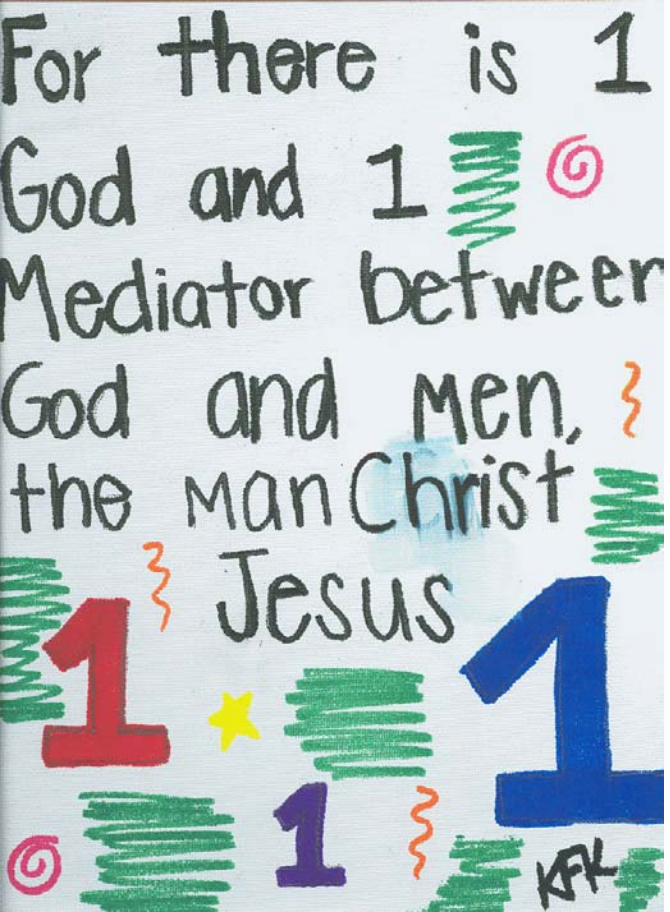 For there is 1
God and 1
Mediator between
God and Men,
the Man Christ
Jesus
1
1
1
KFK